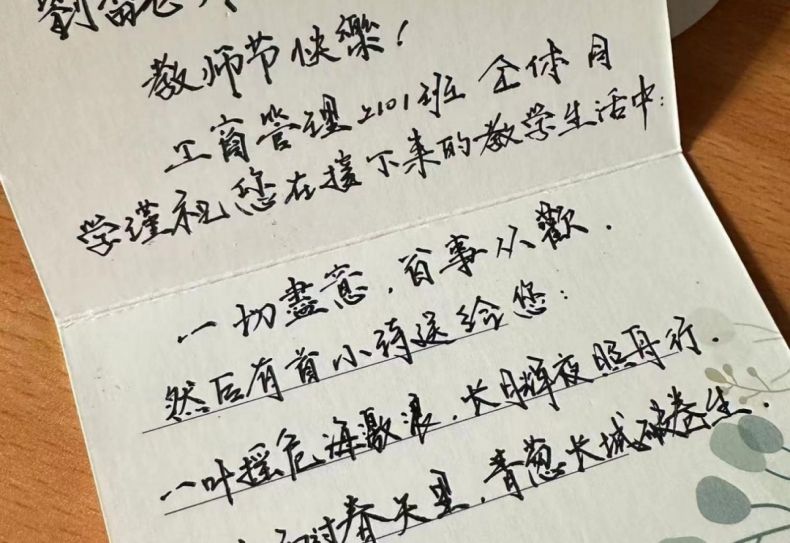 劉
教师节快樂！
工商管理2101班 全体同
学谨祝您在接下来的教学生活中：
一切盡意，百事从歡．
然后有首小诗送给您：
一叶摇危海激浪，长月辉夜照舟行．
春天里，青葱长城破卷生．